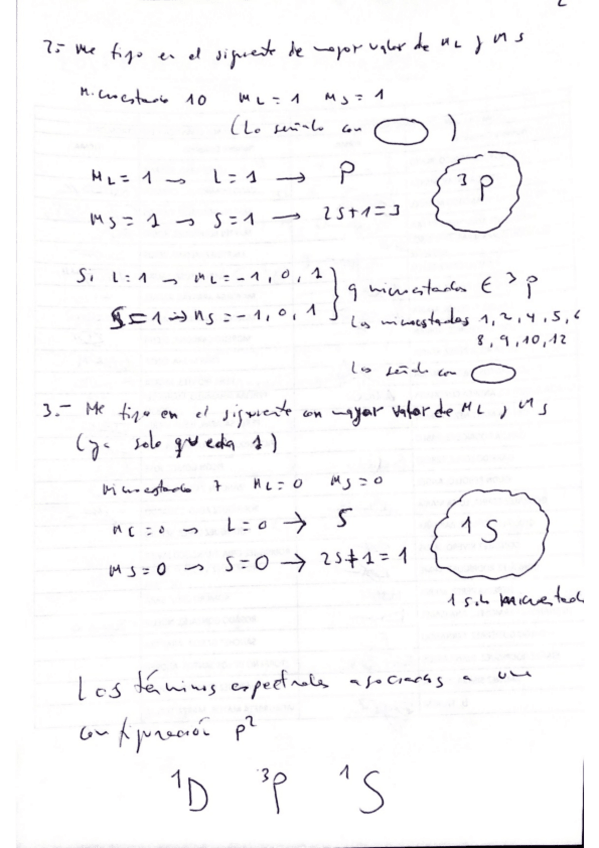 2
2.- Me fijo en el siguiente de mayor valor de ML y MS
Microestado 10 ML = 1 MS = 1
(Lo señalo con )
ML = 1 → L = 1 → P
MS = 1 → S = 1 → 2S+1 = 3
³P
Si L=1 → ML = -1, 0, 1
S = 1 ⇒ MS = -1, 0, 1
9 microestados ∈ ³P
Los microestados 1, 2, 4, 5, 6
8, 9, 10, 12
Los señalo con
3.- Me fijo en el siguiente con mayor valor de ML y MS
(ya solo queda 1)
Microestado 7 ML = 0 MS = 0
ML = 0 → L = 0 → S
MS = 0 → S = 0 → 2S+1 = 1
¹S
1 solo microestad
Los términos espectrales asociados a una
configuración p²
¹D ³P ¹S